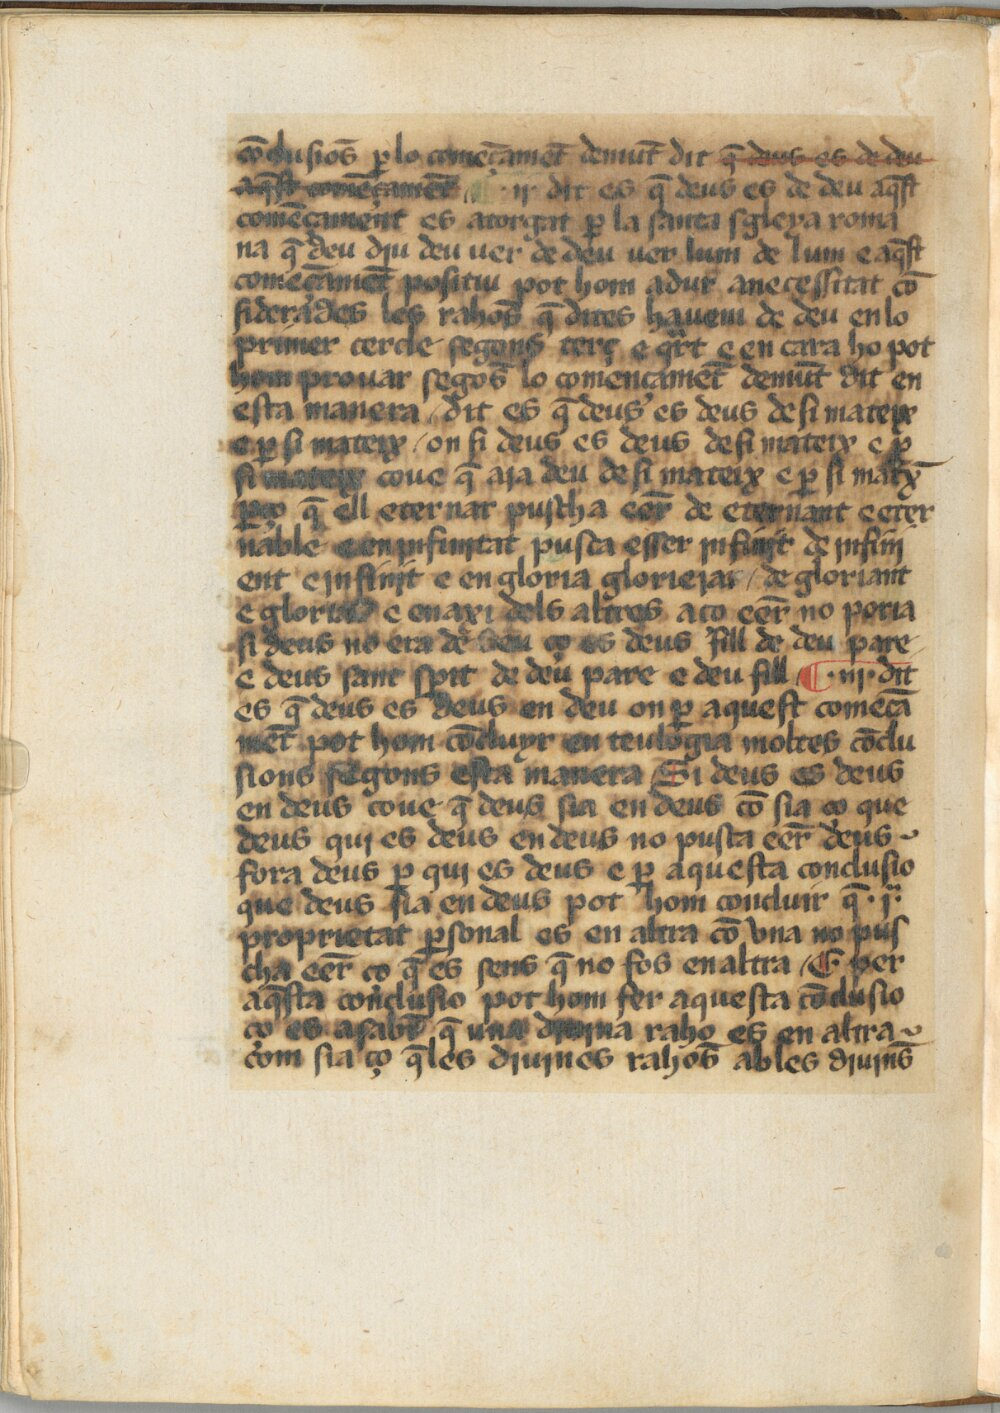 cōclusiōs ꝑ lo comēçamēt demūt dit q̄ deus es de deu
aq̄st comēçamēt ·ij· dit es q̄ deus es de deu aq̄st
comēnçament es atorgat ꝑ la santa sgleya roma
na q̄ deu diu deu uer de deu uer lum de lum e aq̄st
comēçamēt positiu pot hom adur a necessitat cō
siderades les rahōs q̄ dites hauem de deu en lo
primer cercle segons terç e qrt e encara ho pot
hom prouar segōs lo comencamēt demūt dit en
esta manera / dit es q̄ deus es deus de si mateix
e ꝑ si mateix / on si deus es deus de si mateix e ꝑ
si mateix coue q̄ aia deu de si mateix e ꝑ si matx̄
ꝑço q̄ ell eternar puscha eēr de eternant e eter
nable e en infinitat pusca esser infinit de infini
ent e infinit e en gloria glorieiar / de gloriant
e gloriat e enaxi dels altres aco eēr no poria
si deus no era de deu ço es deus fill de deu pare
e deus sant spīt de deu pare e deu fill ¶ ·iij· dit
es q̄ deus es deus en deu on ꝑ aquest comēcā
mēt pot hom cōcluyr en teulogia moltes cōclu
sions segons esta manera Si deus es deus
en deus coue q̄ deus sia en deus cō sia ço que
deus qui es deus en deus no pusca eēr deus
fora deus ꝑ qui es deus e ꝑ aquesta conclusio
que deus sia en deus pot hom concluir q̄ ·jª·
proprietat ꝑsonal es en altra cō vna no pus
cha eēr ço q̄ es sens q̄ no fos en altra / E per
aq̄sta conclusio pot hom fer aquesta cōclusio
ço es a saber q̄ una diuina raho es en altra
com sia ço q̄ les diuines rahōs ab les diuinīs